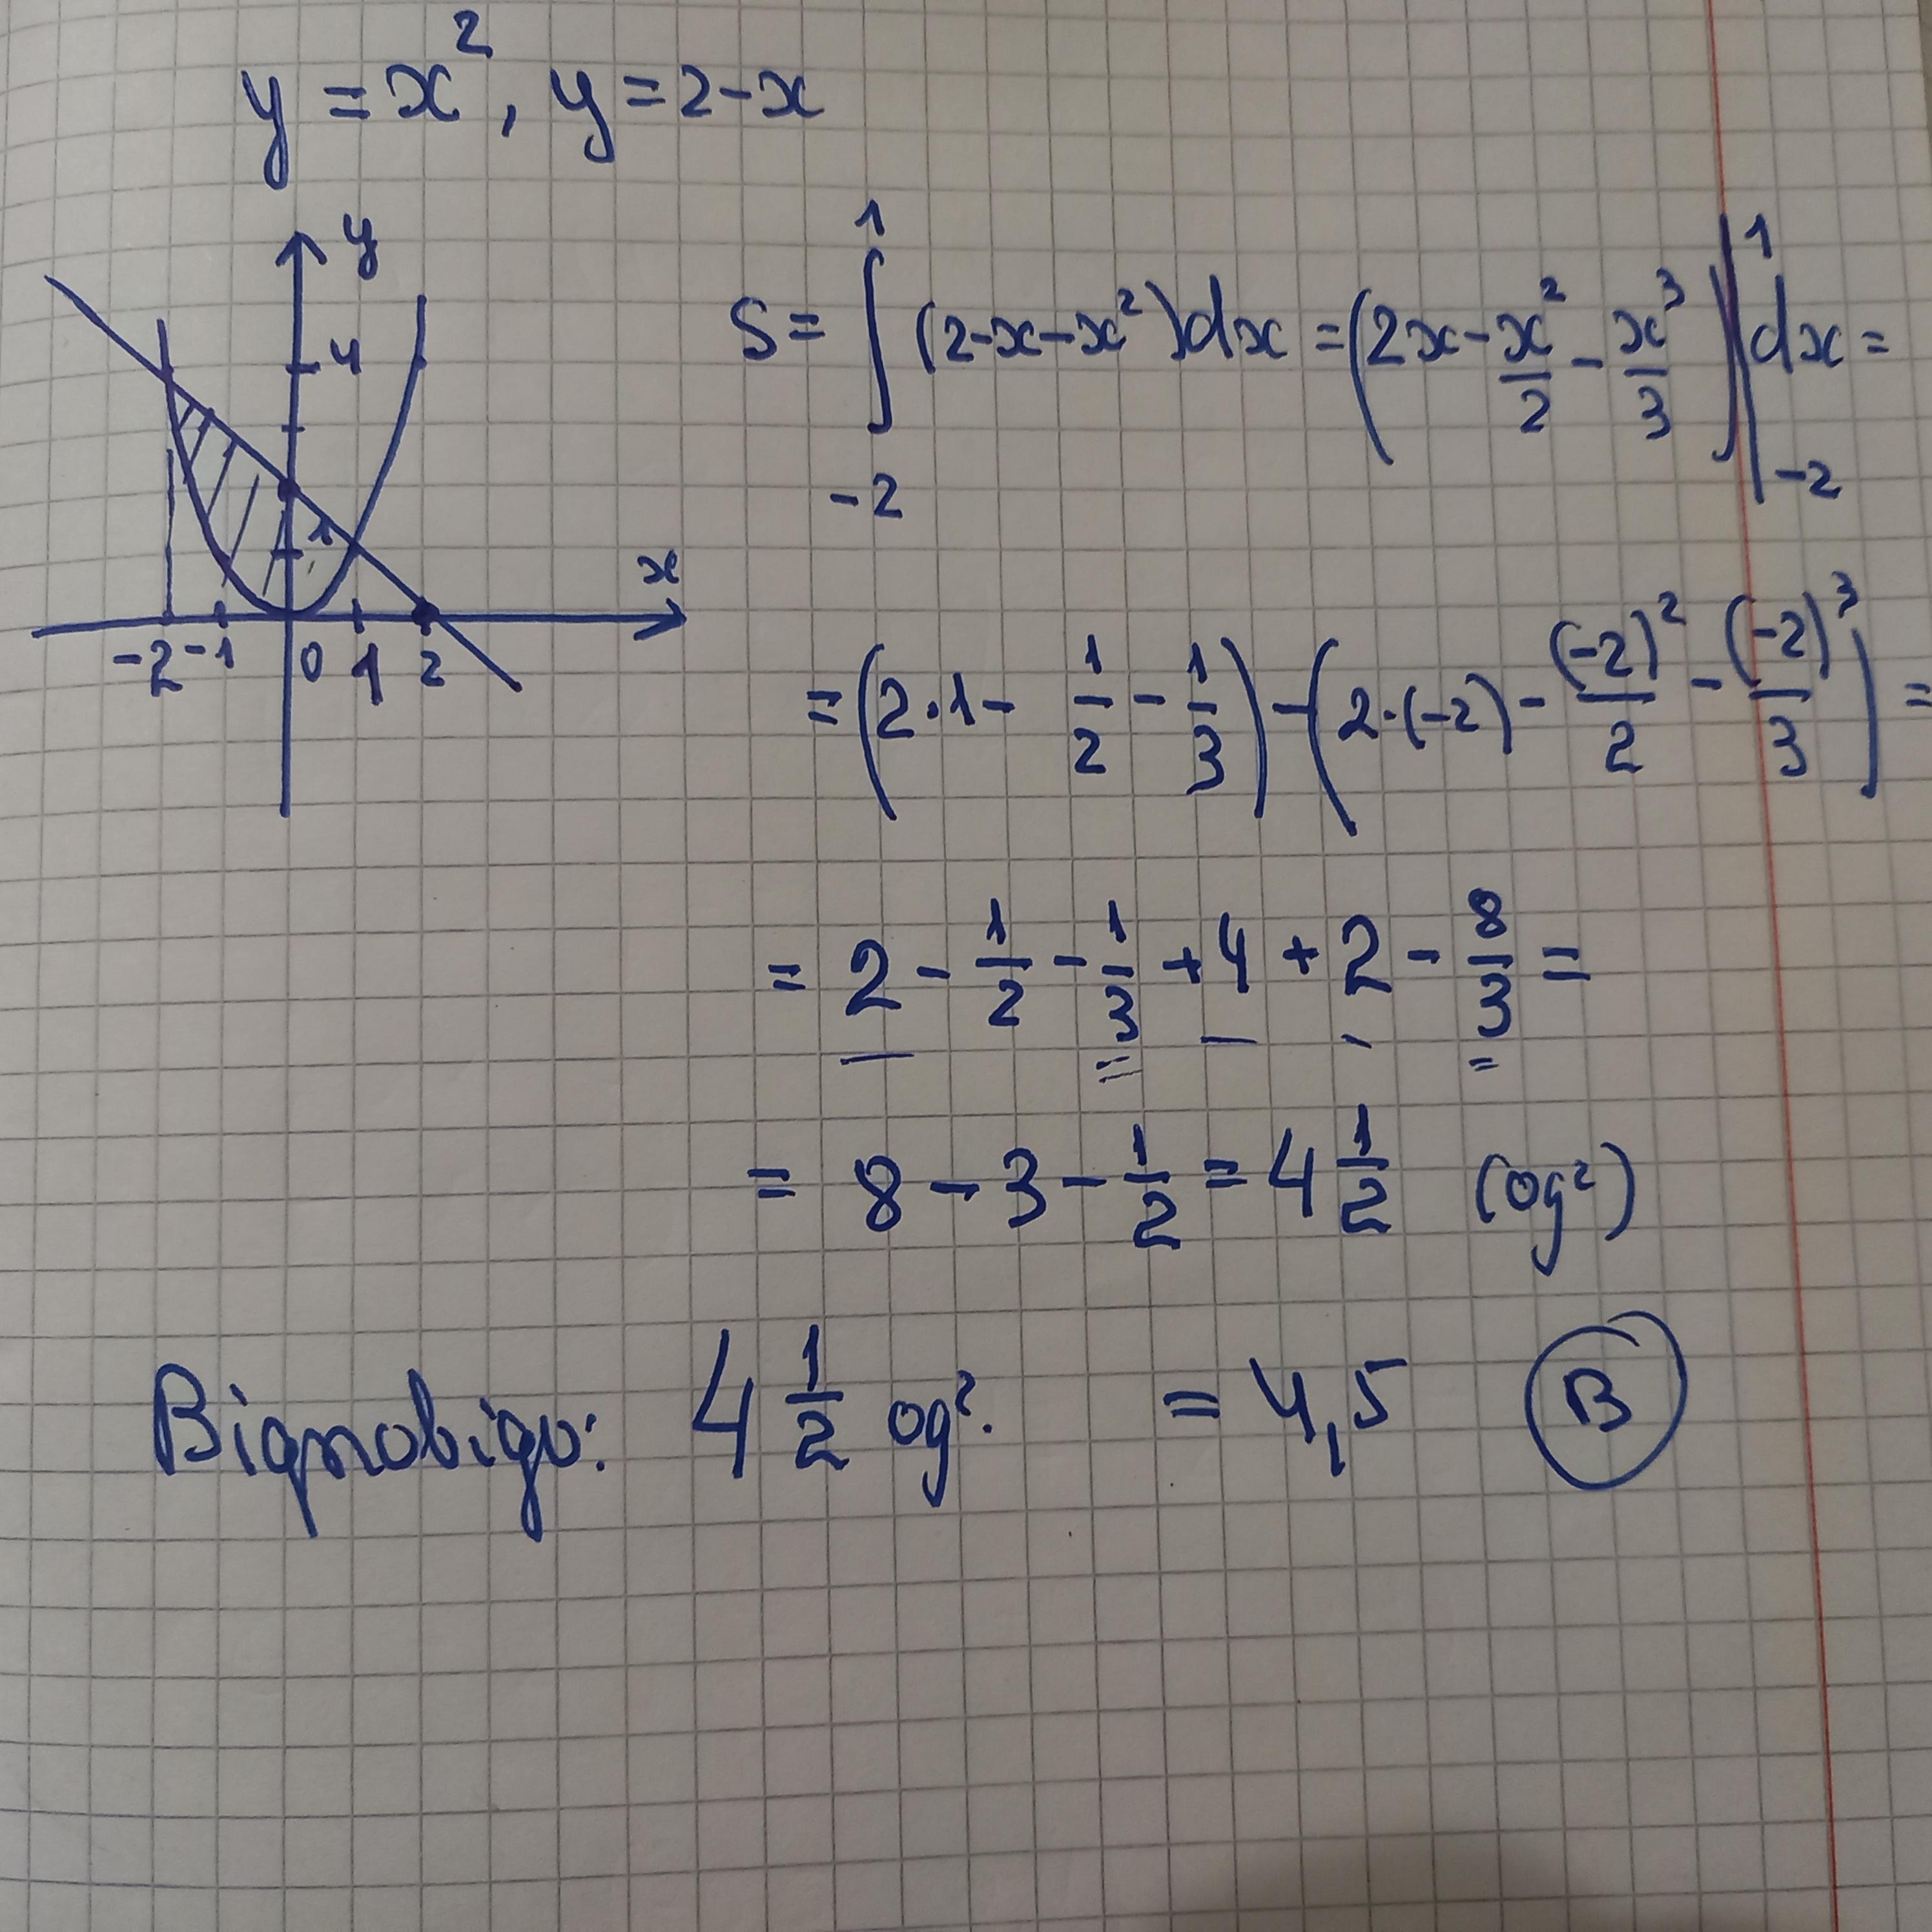 y = x², y = 2-x
y
4
1
x
-2 -1 0 1 2
S = ∫₋₂¹ (2-x-x²)dx = (2x - x²/2 - x³/3)|₋₂¹ dx =
= (2·1 - 1/2 - 1/3) - (2·(-2) - (-2)²/2 - (-2)³/3) =
= 2 - 1/2 - 1/3 + 4 + 2 - 8/3 =
= 8 - 3 - 1/2 = 4 1/2 (од²)
Відповідь: 4 1/2 од². = 4,5 В